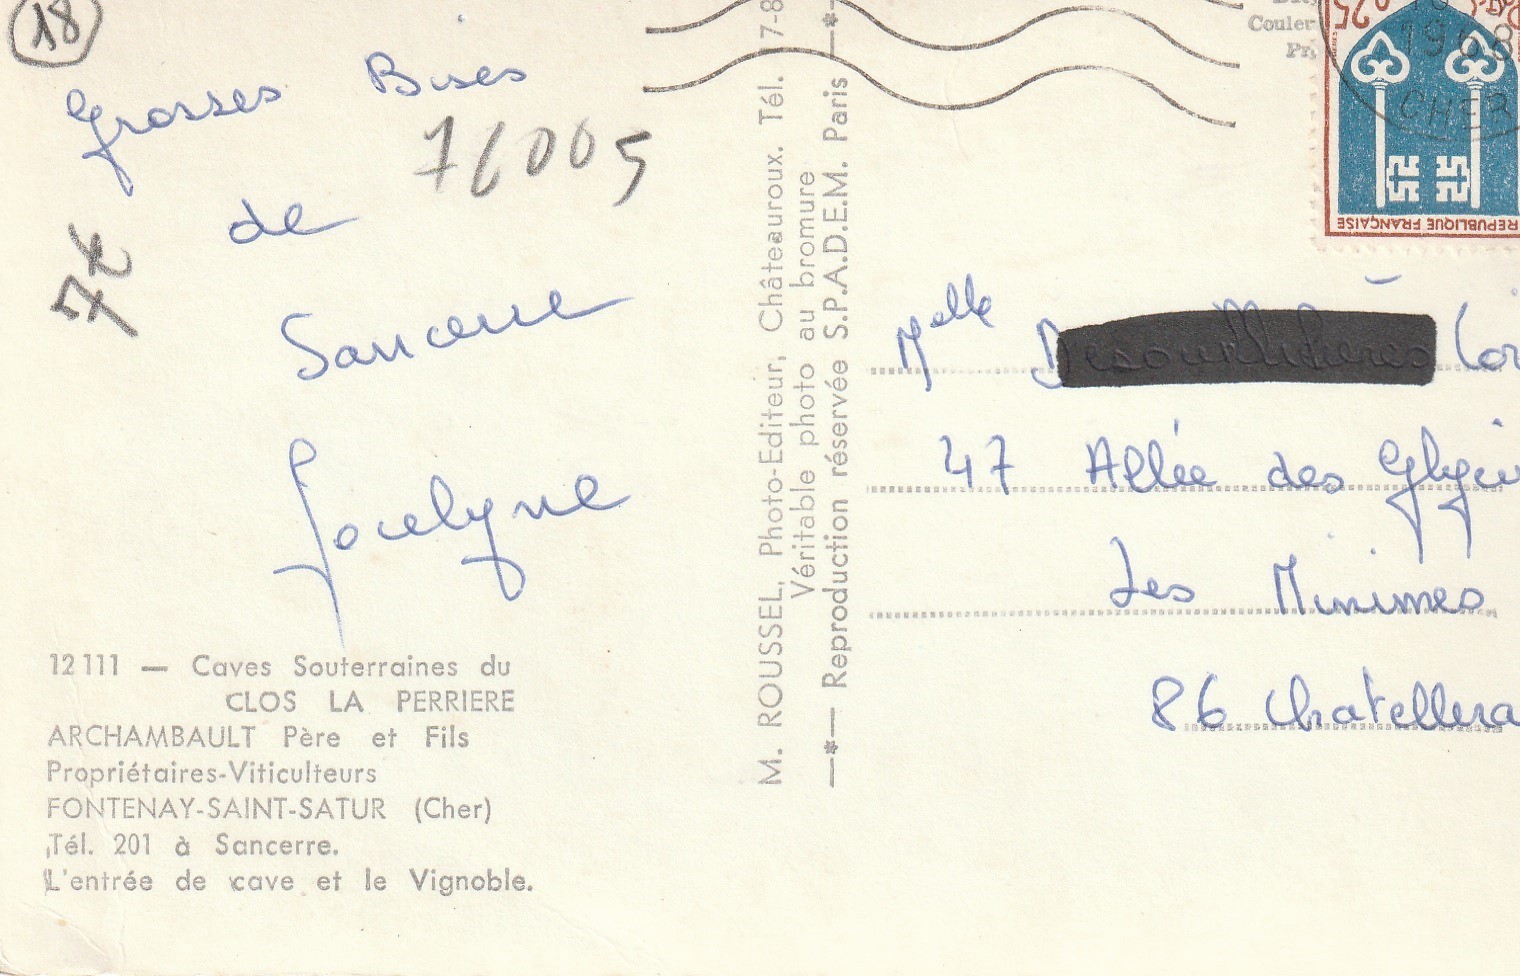 18
Grosses Bises
76005
de
7€
Sancerre
Jocelyne
12111 — Caves Souterraines du
CLOS LA PERRIERE
ARCHAMBAULT Père et Fils
Propriétaires-Viticulteurs
FONTENAY-SAINT-SATUR (Cher)
Tél. 201 à Sancerre.
L'entrée de cave et le Vignoble.
M. ROUSSEL, Photo-Editeur, Châteauroux. Tél. 17-8
Véritable photo au bromure
—*— Reproduction réservée S.P.A.D.E.M. Paris —*—
Couleur
0.25
1968
CHER
REPUBLIQUE FRANÇAISE
Melle
47 Allée des
Les Minimes
86 Chatellera